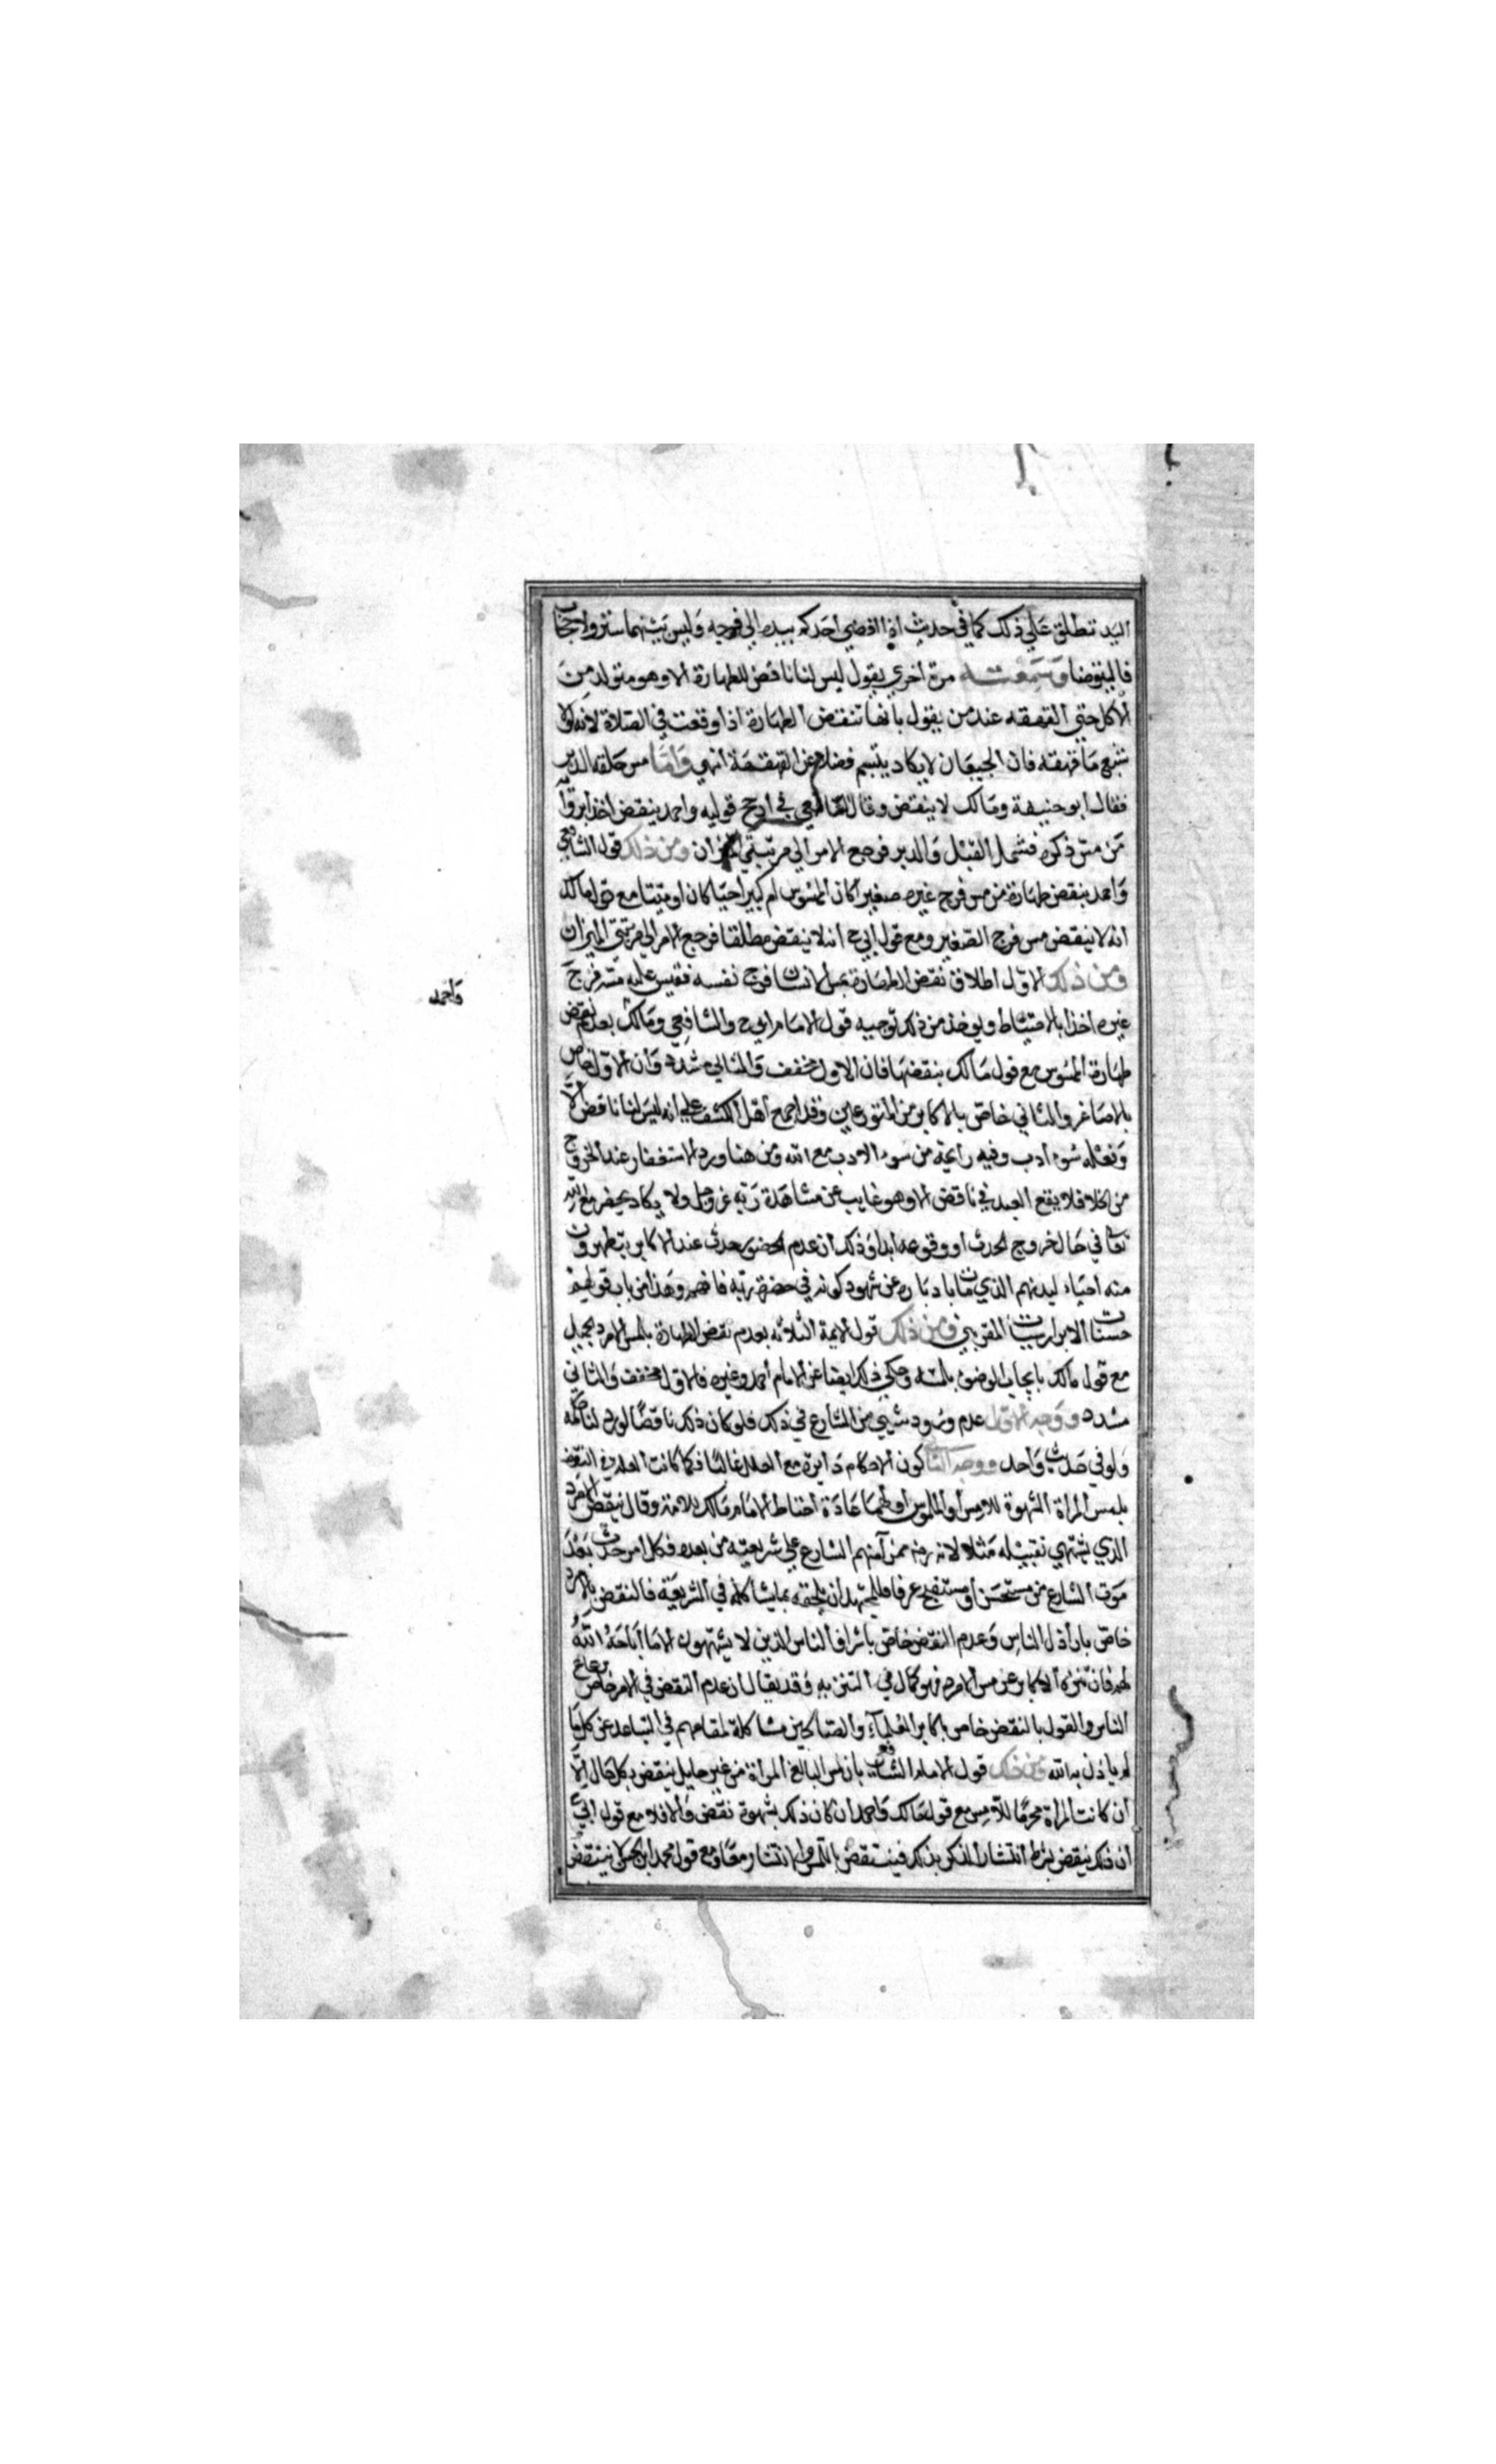 اليد تطلق علي ذلك كما في حديث اذا افضي احدكم بيده الي فرجه وليس بينهما ستر ولا حجاب
فاليتوضا وسمعته مرة اخري يقول ليس لنا ناقض للطهارة الا وهو متولد من
الاكل حتي القهقهه عند من يقول بانها تنقض الطهارة اذا وقعت في الصلاة لانه لولا
شبع ما قهقه فان الجيعان لا يكاد يتبسم فضلا عن القهقهة انهي واما مس حلقه الدبر
فقال ابو حنيفة ومالك لا ينقض وقال الشافعي في ارجح قوليه واحمد ينقض اخذا برواية
من مس ذكره فشمل القبل والدبر فرجع الامر الي مرتبتي الميزان ومن ذلك قول الشافعي
واحمد بنقض طهارة من مس فرج غيره صغيرا كان الممسوس ام كبيرا حيا كان او ميتا مع قول مالك
انه لا ينقض مس فرج الصغير ومع قول ابي ح انه لا ينقض مطلقا فرجع الامر الي مرتبتي الميزان
ومن ذلك الاول اطلاق نقض الطهارة بمس الانسان فرج نفسه فقيس عليه مسه فرج
غيره اخذا بالاحتياط ويوخذ من ذلك توجيه قول الامام ابي ح والشافعي ومالك بعدم نقض
واحمد
طهارة الممسوس مع قول مالك بنقضها فان الاول مخفف والثاني مشدد وان الاول خاص
بالاصاغر والثاني خاص بالاكابر من المتورعين وقد اجمع اهل الكشف علي انه ليس لنا ناقض الا
وفعله سوء ادب وفيه رايحة من سوء الادب مع الله ومن هنا ورد الاستغفار عند الخروج
من الخلا فلا يقع العبد في ناقض الا وهو غايب عن مشاهدة ربه عز وجل ولا يكاد يحضر مع الله
تعالي في حال خروج الحدث او وقوعه ابدا وذلك ان عدم الحضور حدث عند الاكابر يتطهرون
منه احياء لبدنهم الذي مات بادباره عن شهود كونه في حضرة ربه فافهم وهذا من باب قولهم
حسنات الابرار سيات المقربين ومن ذلك قول الايمة الثلاثه بعدم نقض الطهارة بلمس الامرد الجميل
مع قول مالك بايجاب الوضوء بلمسه وحكي ذلك ايضا عن الامام احمد وغيره فالاول مخفف والثاني
مشدد ووجه الاول عدم ورود شيي من الشارع في ذلك فلو كان ذلك ناقضا لورد لنا
ولو في حديث واحد ووجه الثاني كون الاحكام دايرة مع العلل غالبا فكما كانت العله في النقض
بلمس المراة الشهوة للامس او الملموس او لهما عادة احتاط الامام مالك للامة وقال ينقض الامرد
الذي يشتهي تقبيله مثلا لانه ممن امنهم الشارع علي شريعته من بعده فكل امر حدث بعد
موت الشارع من مستحسن او مستقبح عرفا فللمجتهد ان يلحقه بما يشاكله في الشريعة فالنقض بالامرد
خاص باراذل الناس وعدم النقض خاص باشراف الناس الذين لا يشتهون الا ما اباحه الله
لهم فان تنزه الاكابر عن مس الامرد فهو كمال في التنزيه وقد يقال ان عدم النقض في الامر خاص برعاع
الناس والقول بالنقض خاص باكابر العلماء والصالحين مشاكلة لمقامهم في التباعد عن كل ما
لم ياذن به الله ومن ذلك قول الامام الشافعي بان لمس البالغ المراة من غير حايل ينقض بكل حال الا
ان كانت المراة محرما للامس مع قول مالك واحمد ان كان ذلك بشهوة نقض والا فلا مع قول ابي ح
ان ذلك ينقض بشرط انتشار الذكر بذلك فينتقض باللمس والانتشار معا ومع قول محمد ابن الحسن لا ينتقض